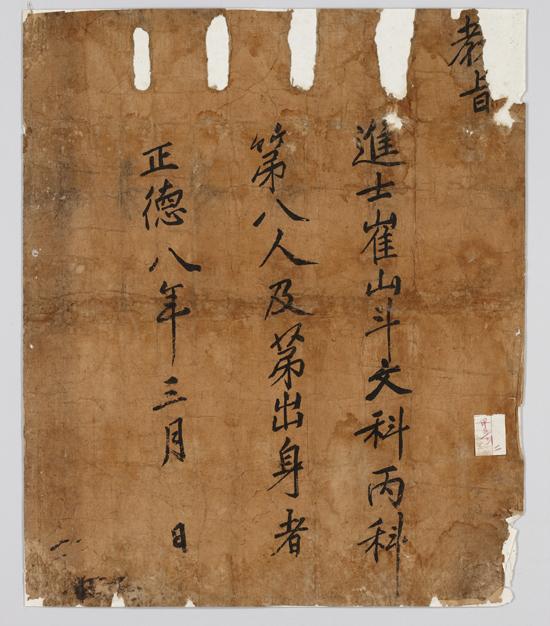 教旨
進士崔山斗文科丙科
第八人及第出身者
正德八年三月 日